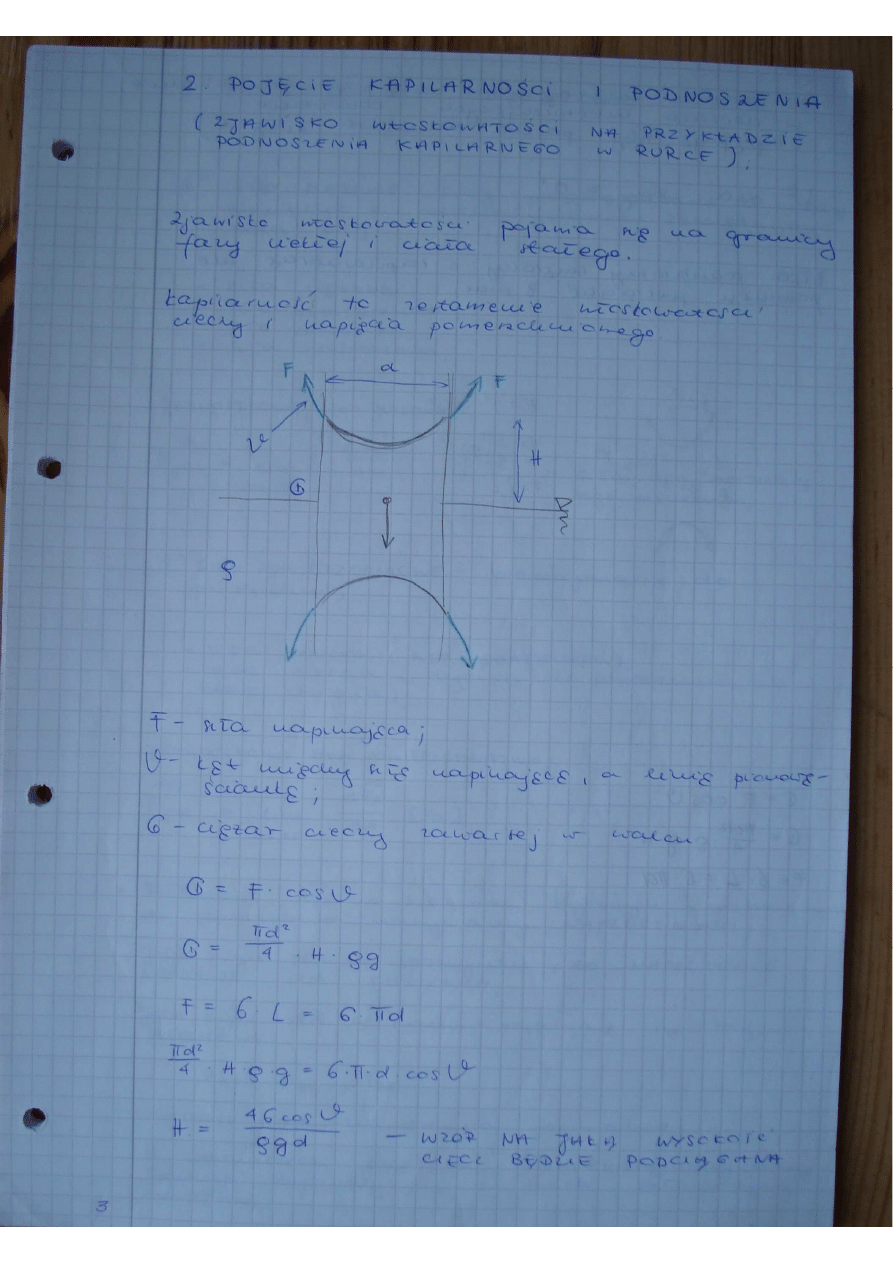 2. POJĘCIE KAPILARNOŚCI I PODNOSZENIA
(ZJAWISKO WŁOSKOWATOŚCI NA PRZYKŁADZIE
PODNOSZENIA KAPILARNEGO W RURCE).
Zjawisko włoskowatości pojawia się na granicy
fazy ciekłej i ciała stałego.
Kapilarność to zestawienie włoskowatości
cieczy i napięcia powierzchniowego
F d F
ϑ
H
G
ρ
F - siła napinająca;
ϑ - kąt między siłą napinającą, a linią pionową -
ścianką;
G - ciężar cieczy zawartej w walcu
G = F · cos ϑ
G = πd²/4 · H · ρg
F = σ L = σ πd
πd²/4 · H · ρ · g = σ · π · d cos ϑ
H = 4σ cos ϑ / ρgd - WZÓR NA JAKĄ WYSOKOŚĆ
CIECZ BĘDZIE PODCIĄGANA
3